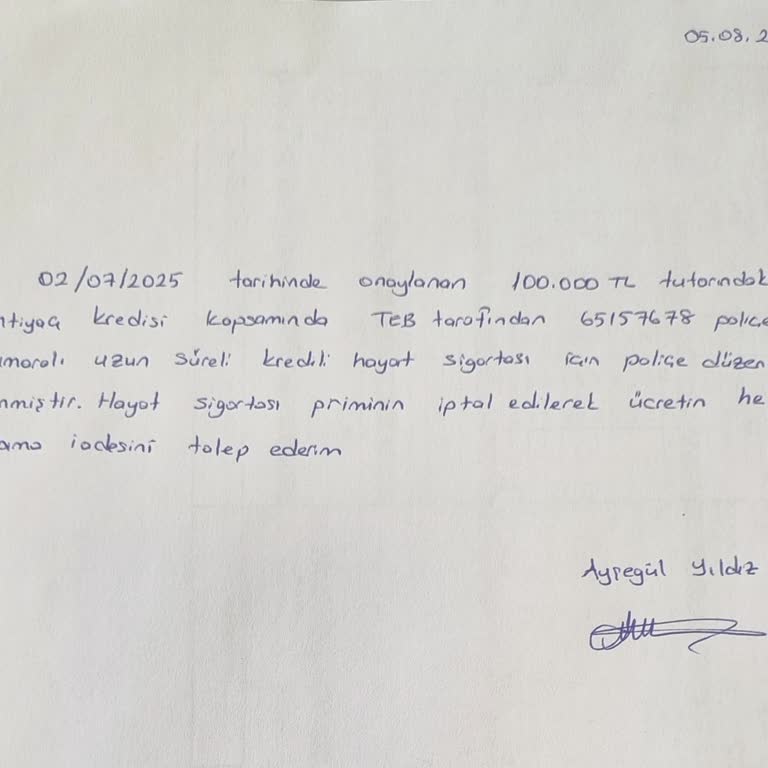 05.08.2
02/07/2025 tarihinde onaylanan 100.000 TL tutarındak
ntiyaç kredisi kapsamında TEB tarafından 65157678 poliçe
maralı uzun süreli kredili hayat sigortası için poliçe düzen
nmiştir. Hayat sigortası priminin iptal edilerek ücretin he
ama iadesini talep ederim
Ayşegül Yıldız